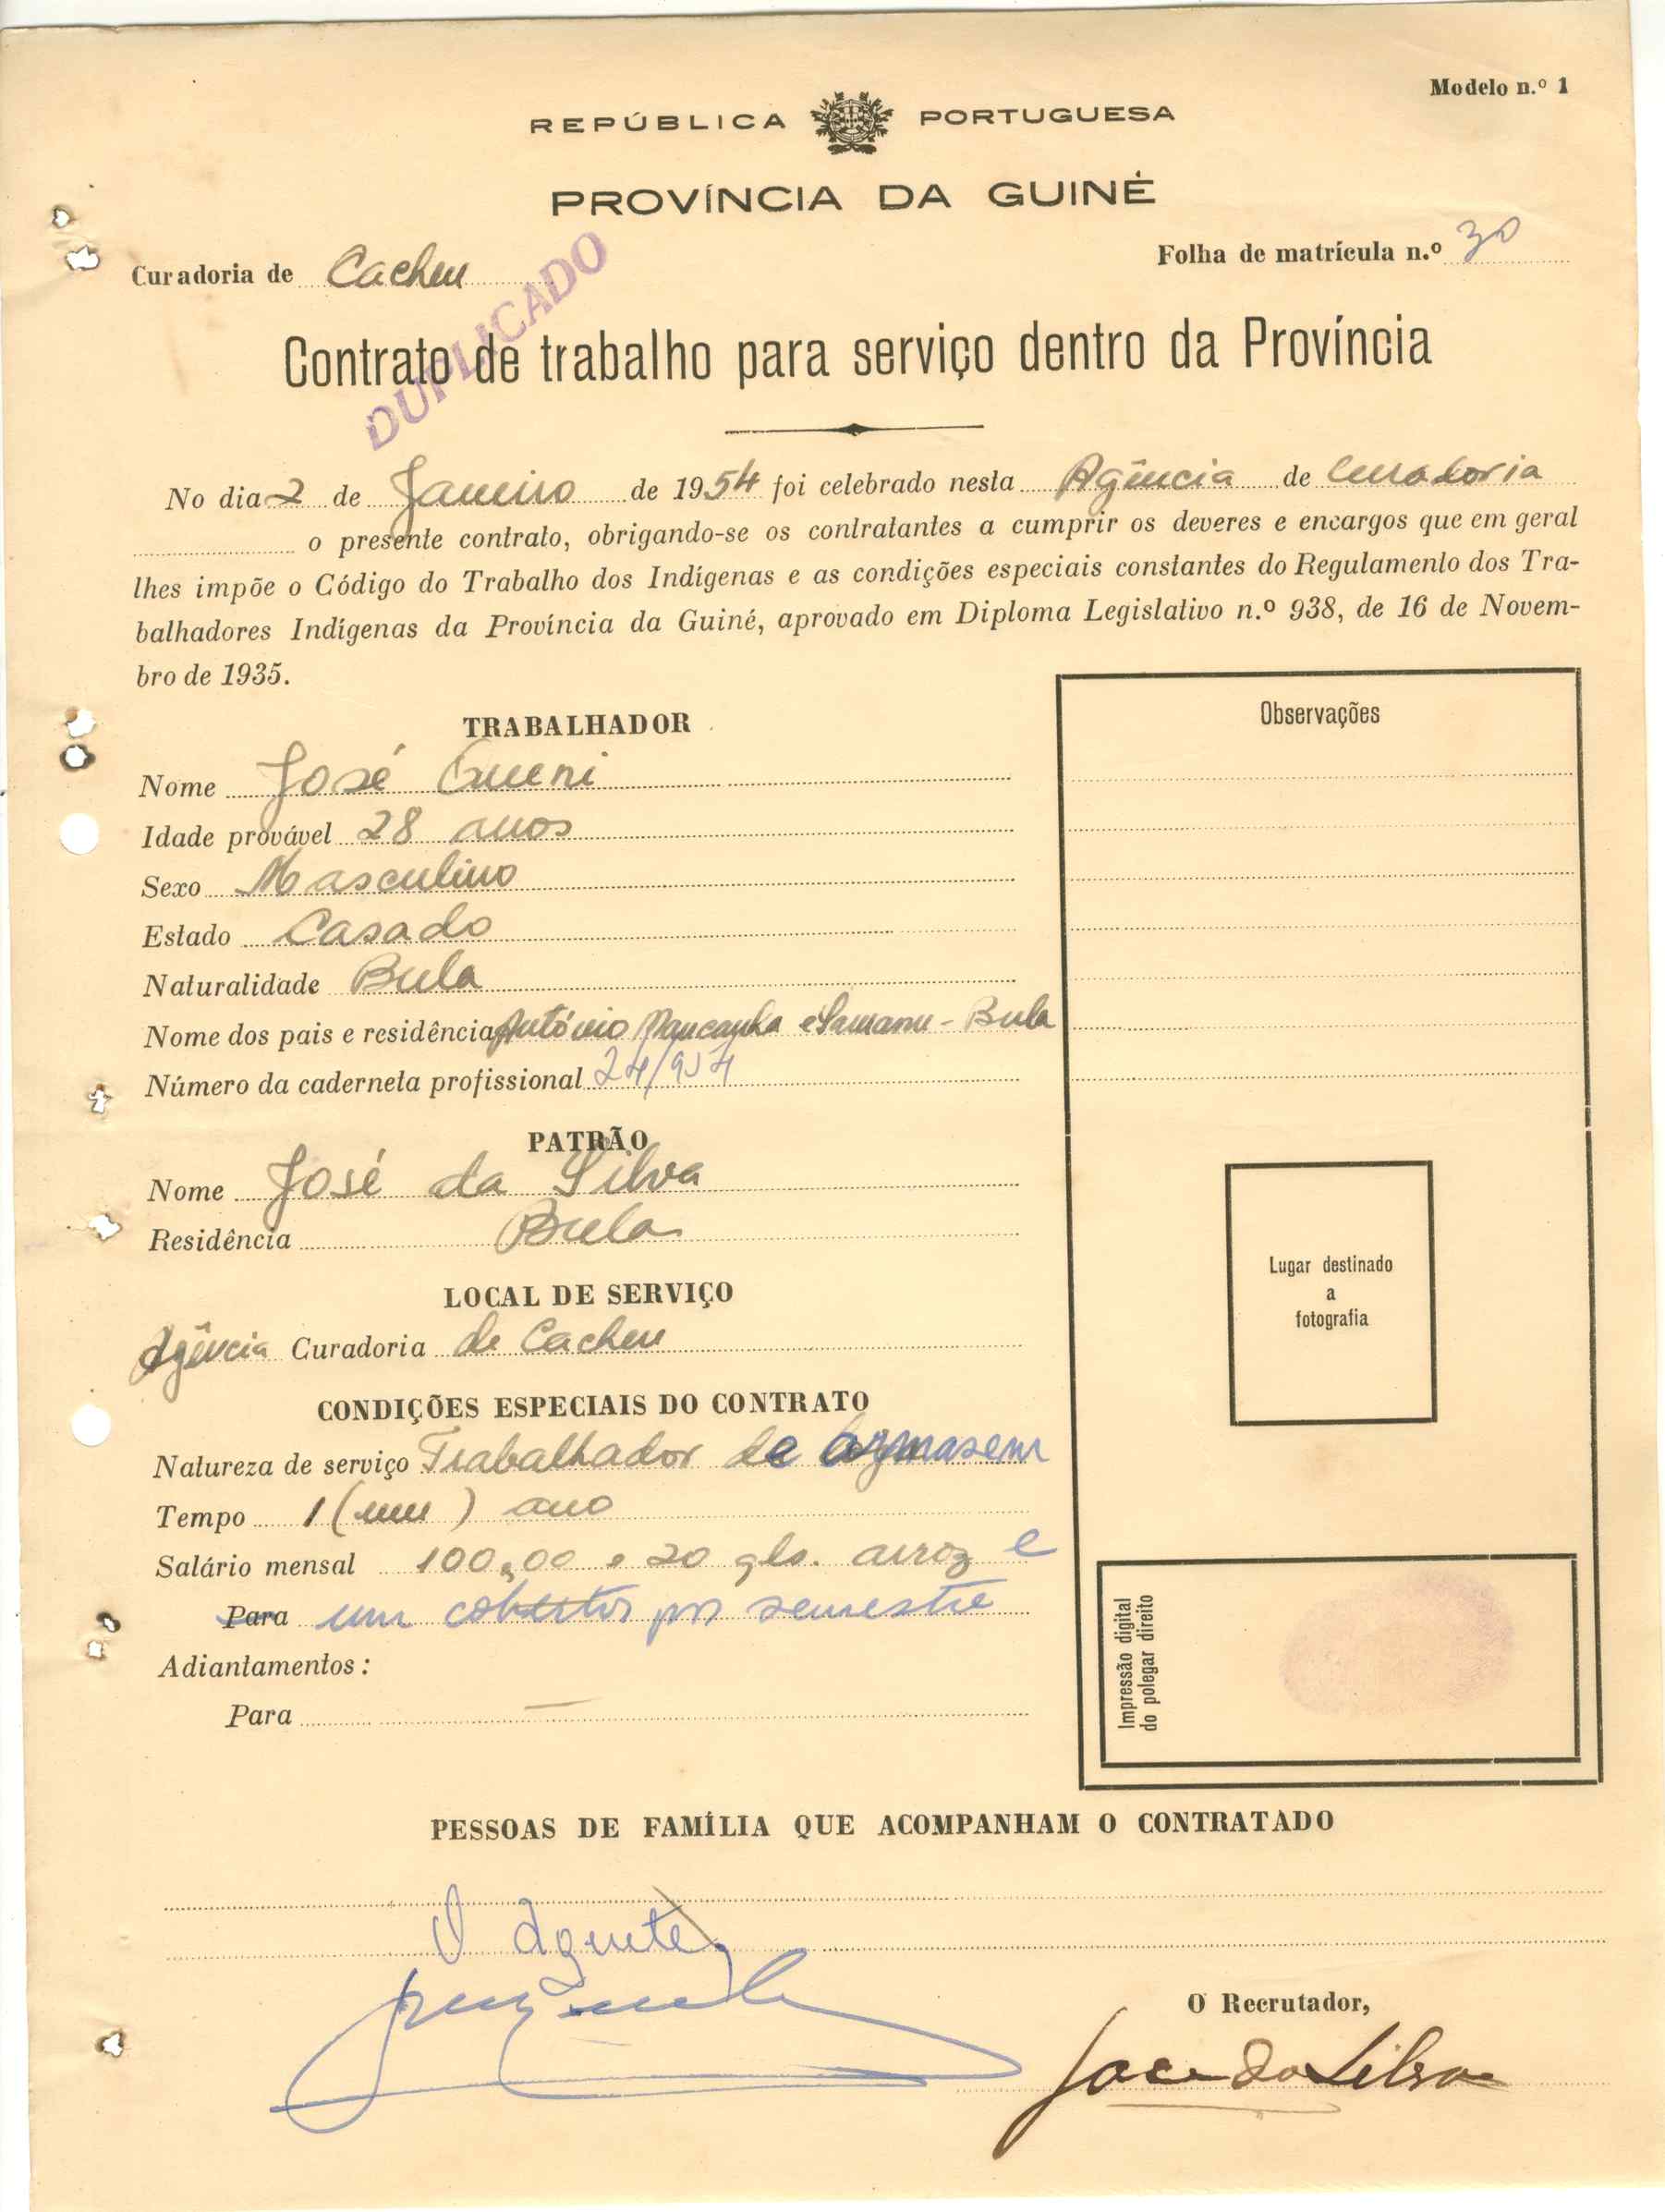 Modelo n.º 1
REPÚBLICA PORTUGUESA
PROVÍNCIA DA GUINÉ
Folha de matrícula n.º 30
Curadoria de Cacheu
DUPLICADO
Contrato de trabalho para serviço dentro da Província
No dia 2 de Janeiro de 1954 foi celebrado nesta Agência de Curadoria
o presente contrato, obrigando-se os contratantes a cumprir os deveres e encargos que em geral
lhes impõe o Código do Trabalho dos Indígenas e as condições especiais constantes do Regulamento dos Tra-
balhadores Indígenas da Província da Guiné, aprovado em Diploma Legislativo n.º 938, de 16 de Novem-
bro de 1935.
TRABALHADOR
Nome José Gueni
Idade provável 28 anos
Sexo Masculino
Estado Casado
Naturalidade Bula
Nome dos pais e residência António Mancanha e - Bula
Número da caderneta profissional 24/954
PATRÃO
Nome José da Silva
Residência Bula
LOCAL DE SERVIÇO
Agência Curadoria de Cacheu
CONDIÇÕES ESPECIAIS DO CONTRATO
Natureza de serviço Trabalhador de
Tempo 1 (um) ano
Salário mensal 100,00 e 20 qls. arroz e
Para um por semestre
Adiantamentos :
Para —
Observações
Lugar destinado
a
fotografia
Impressão digital
do polegar direito
PESSOAS DE FAMÍLIA QUE ACOMPANHAM O CONTRATADO
O Agente,
O Recrutador,
José da Silva